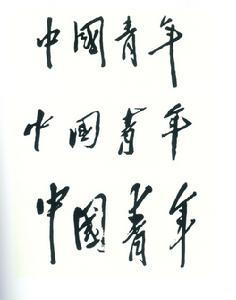 中國青年
中國青年
中國青年